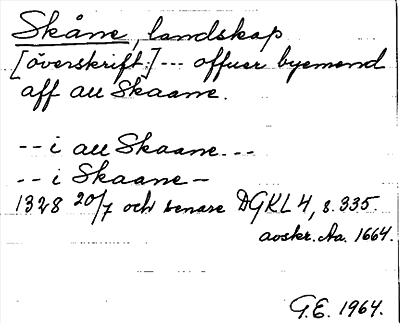 Skåne, landskap
[överskrift:] --- offuer byemend
aff all Skaane.
-- i all Skaane ---
-- i Skaane —
1328 20/7 och senare DGKL 4, s. 335.
avskr. Aa. 1664.
G.E. 1964.